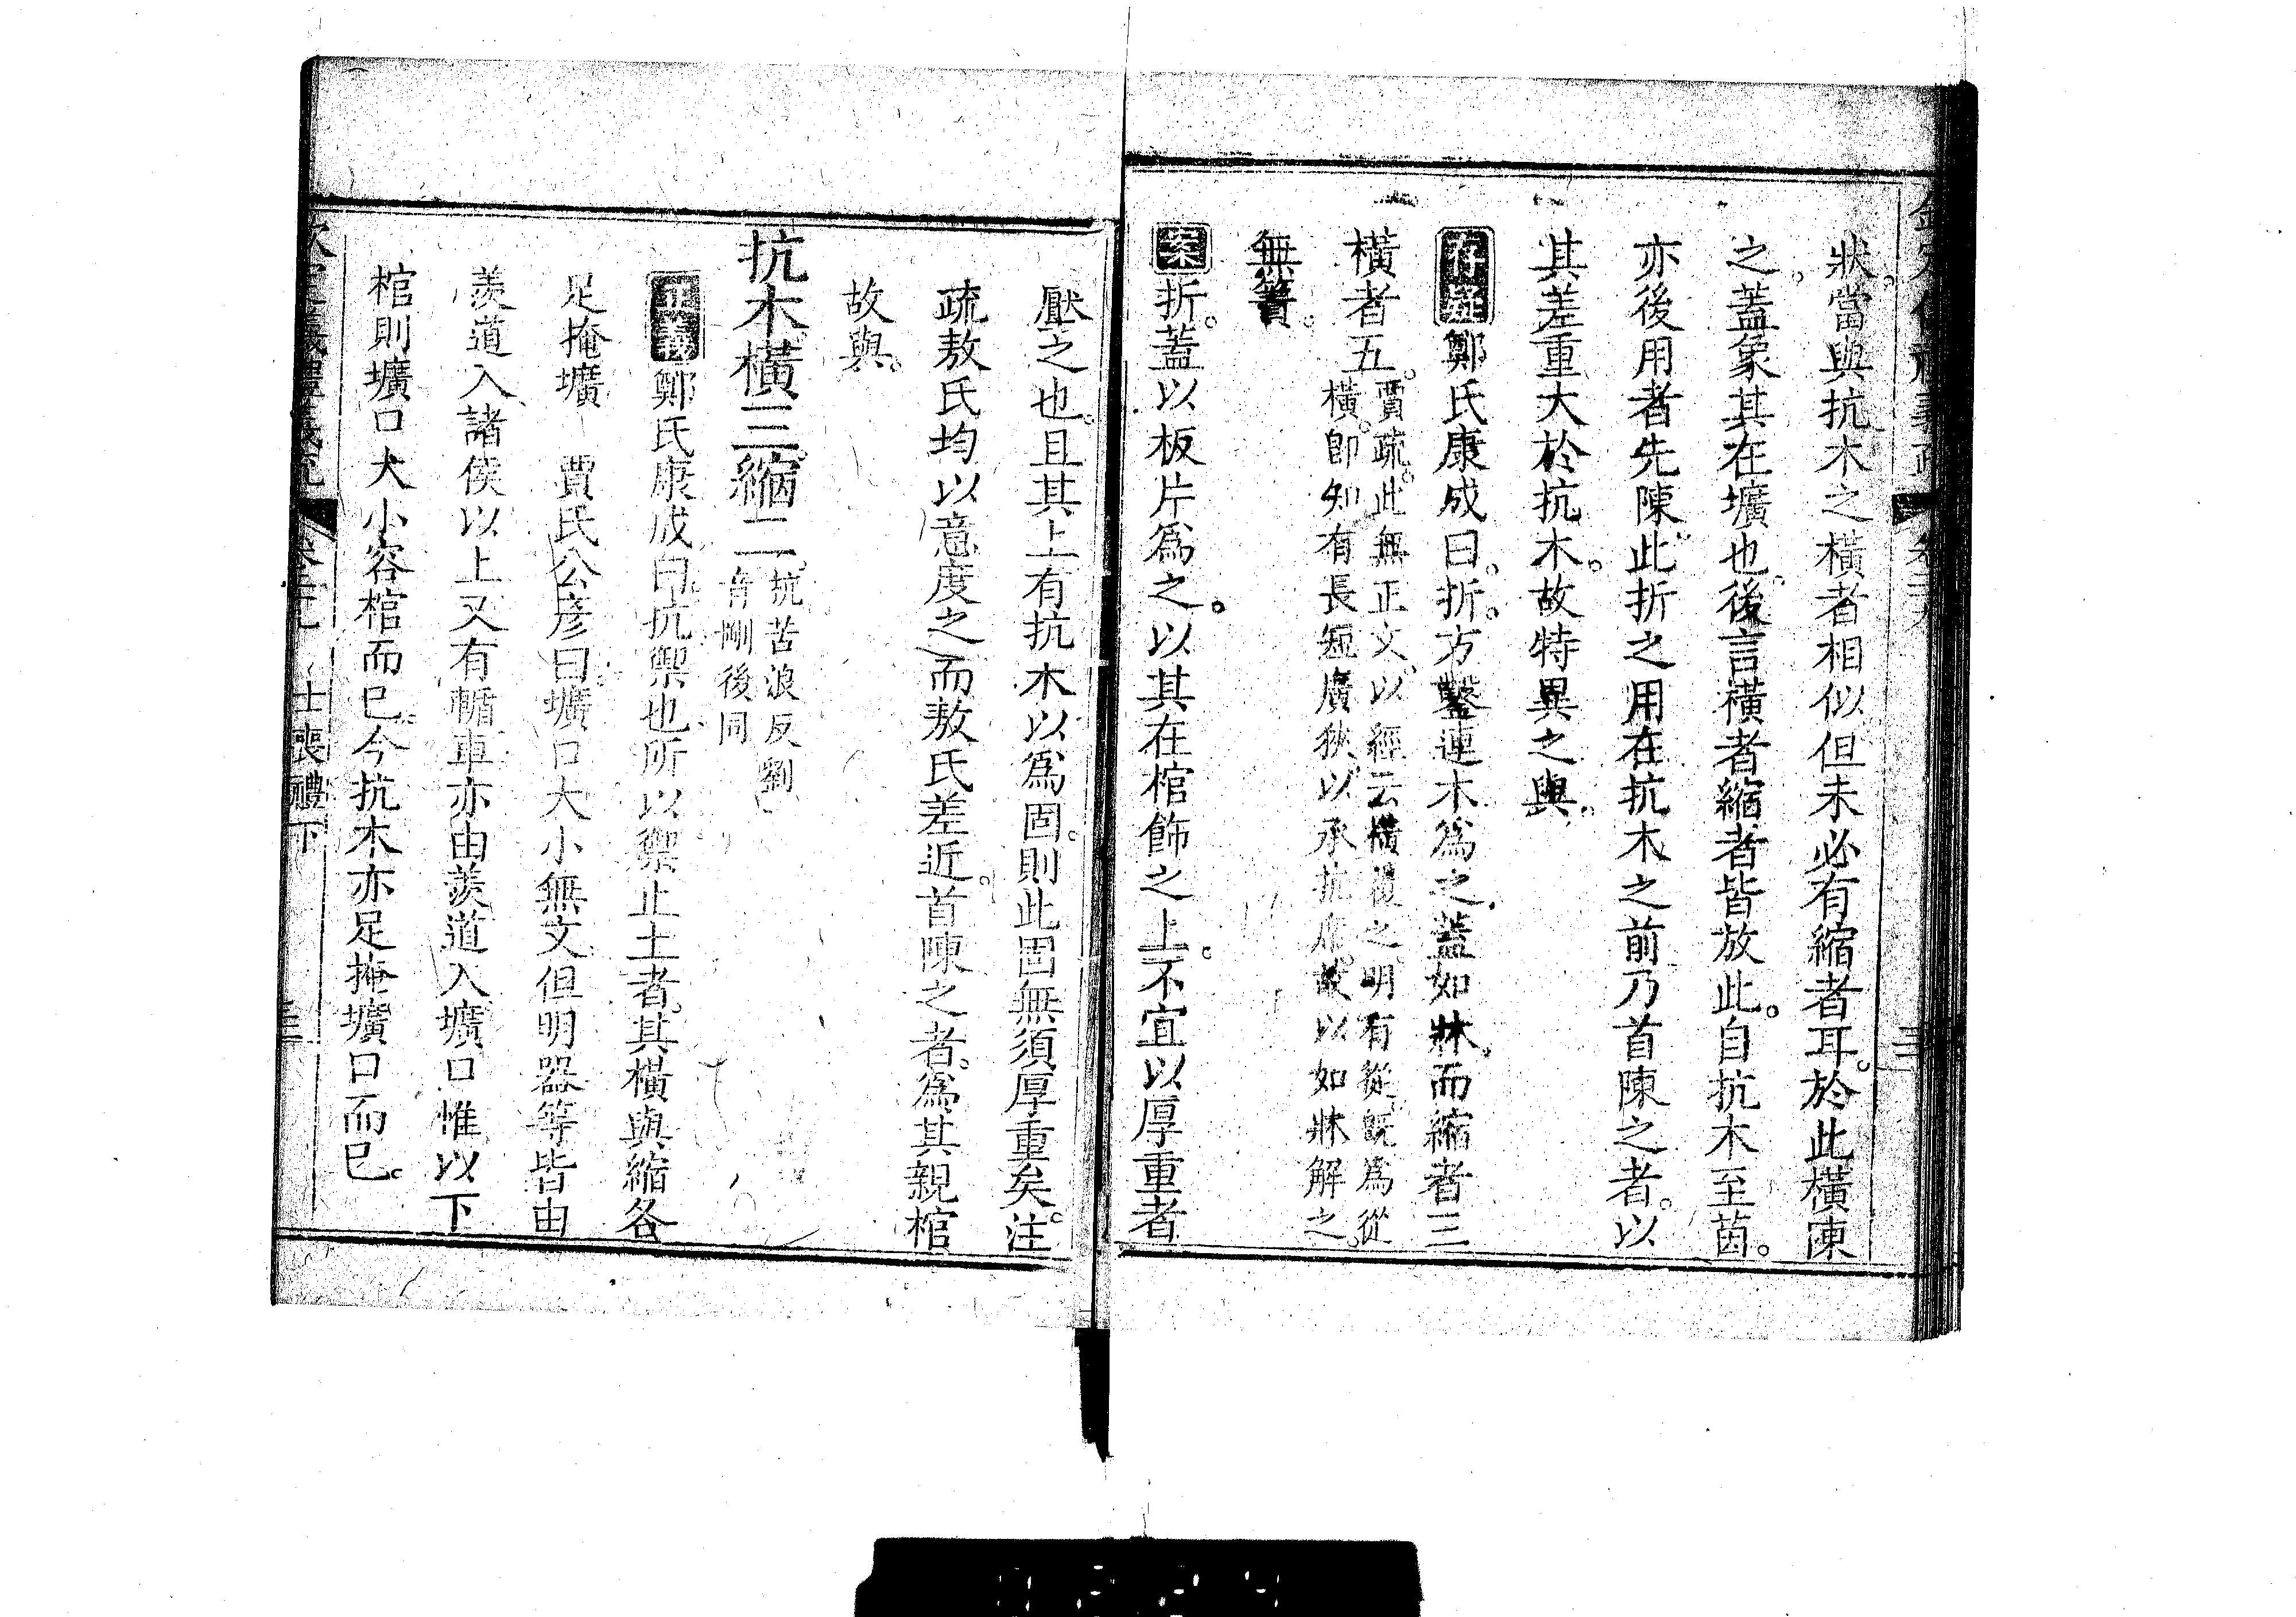 狀。當與抗木之橫者相似但未必有縮者耳。於此橫陳
之。蓋象其在壙也。後言橫者縮者皆放此。自抗木至茵。
亦後用者先陳。此折之用在抗木之前乃首陳之者。以
其差重大於抗木。故特異之與。
存疑鄭氏康成曰。折。方鑿連木爲之。蓋如牀。而縮者三
橫者五。
賈疏。此無正文。以經云橫覆之。明有從。既爲從
橫。即知有長短廣狹。以承抗席。故以如牀解之。
無簀。
案折。蓋以板片爲之。以其在棺飾之上。不宜以厚重者
壓之也。且其上有抗木以爲固。則此固無須厚重矣。注
疏敖氏均以意度之而敖氏差近。首陳之者。爲其親棺
故與。
抗木橫三縮二。
抗苦浪反劉
音剛後同
正義鄭氏康成曰。抗禦也。所以禦止土者。其橫與縮各
足掩壙 賈氏公彦曰。壙口大小無文但明器等皆由
羨道入諸侯以上又有輴車亦由羨道入壙口惟以下
棺則壙口大小容棺而已。今抗木亦足掩壙口而已。
士喪禮下